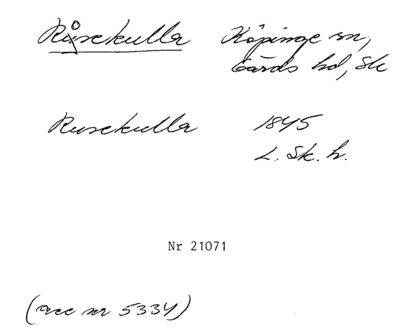 Rusekulla Köpinge sn,
Gärds hd, Sk
Rusekulla 1845
L. Sk. h.
Nr 21071
(acc nr 5334)